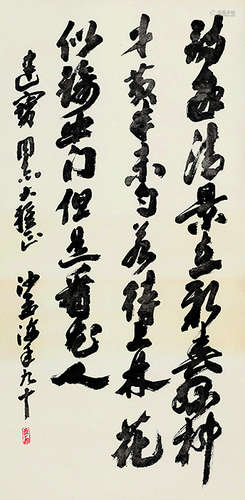 詩家清景在新春綠柳
才黃半未勻若待上林花
似錦出門但是看花人
同志大雅正 沙孟海年九十